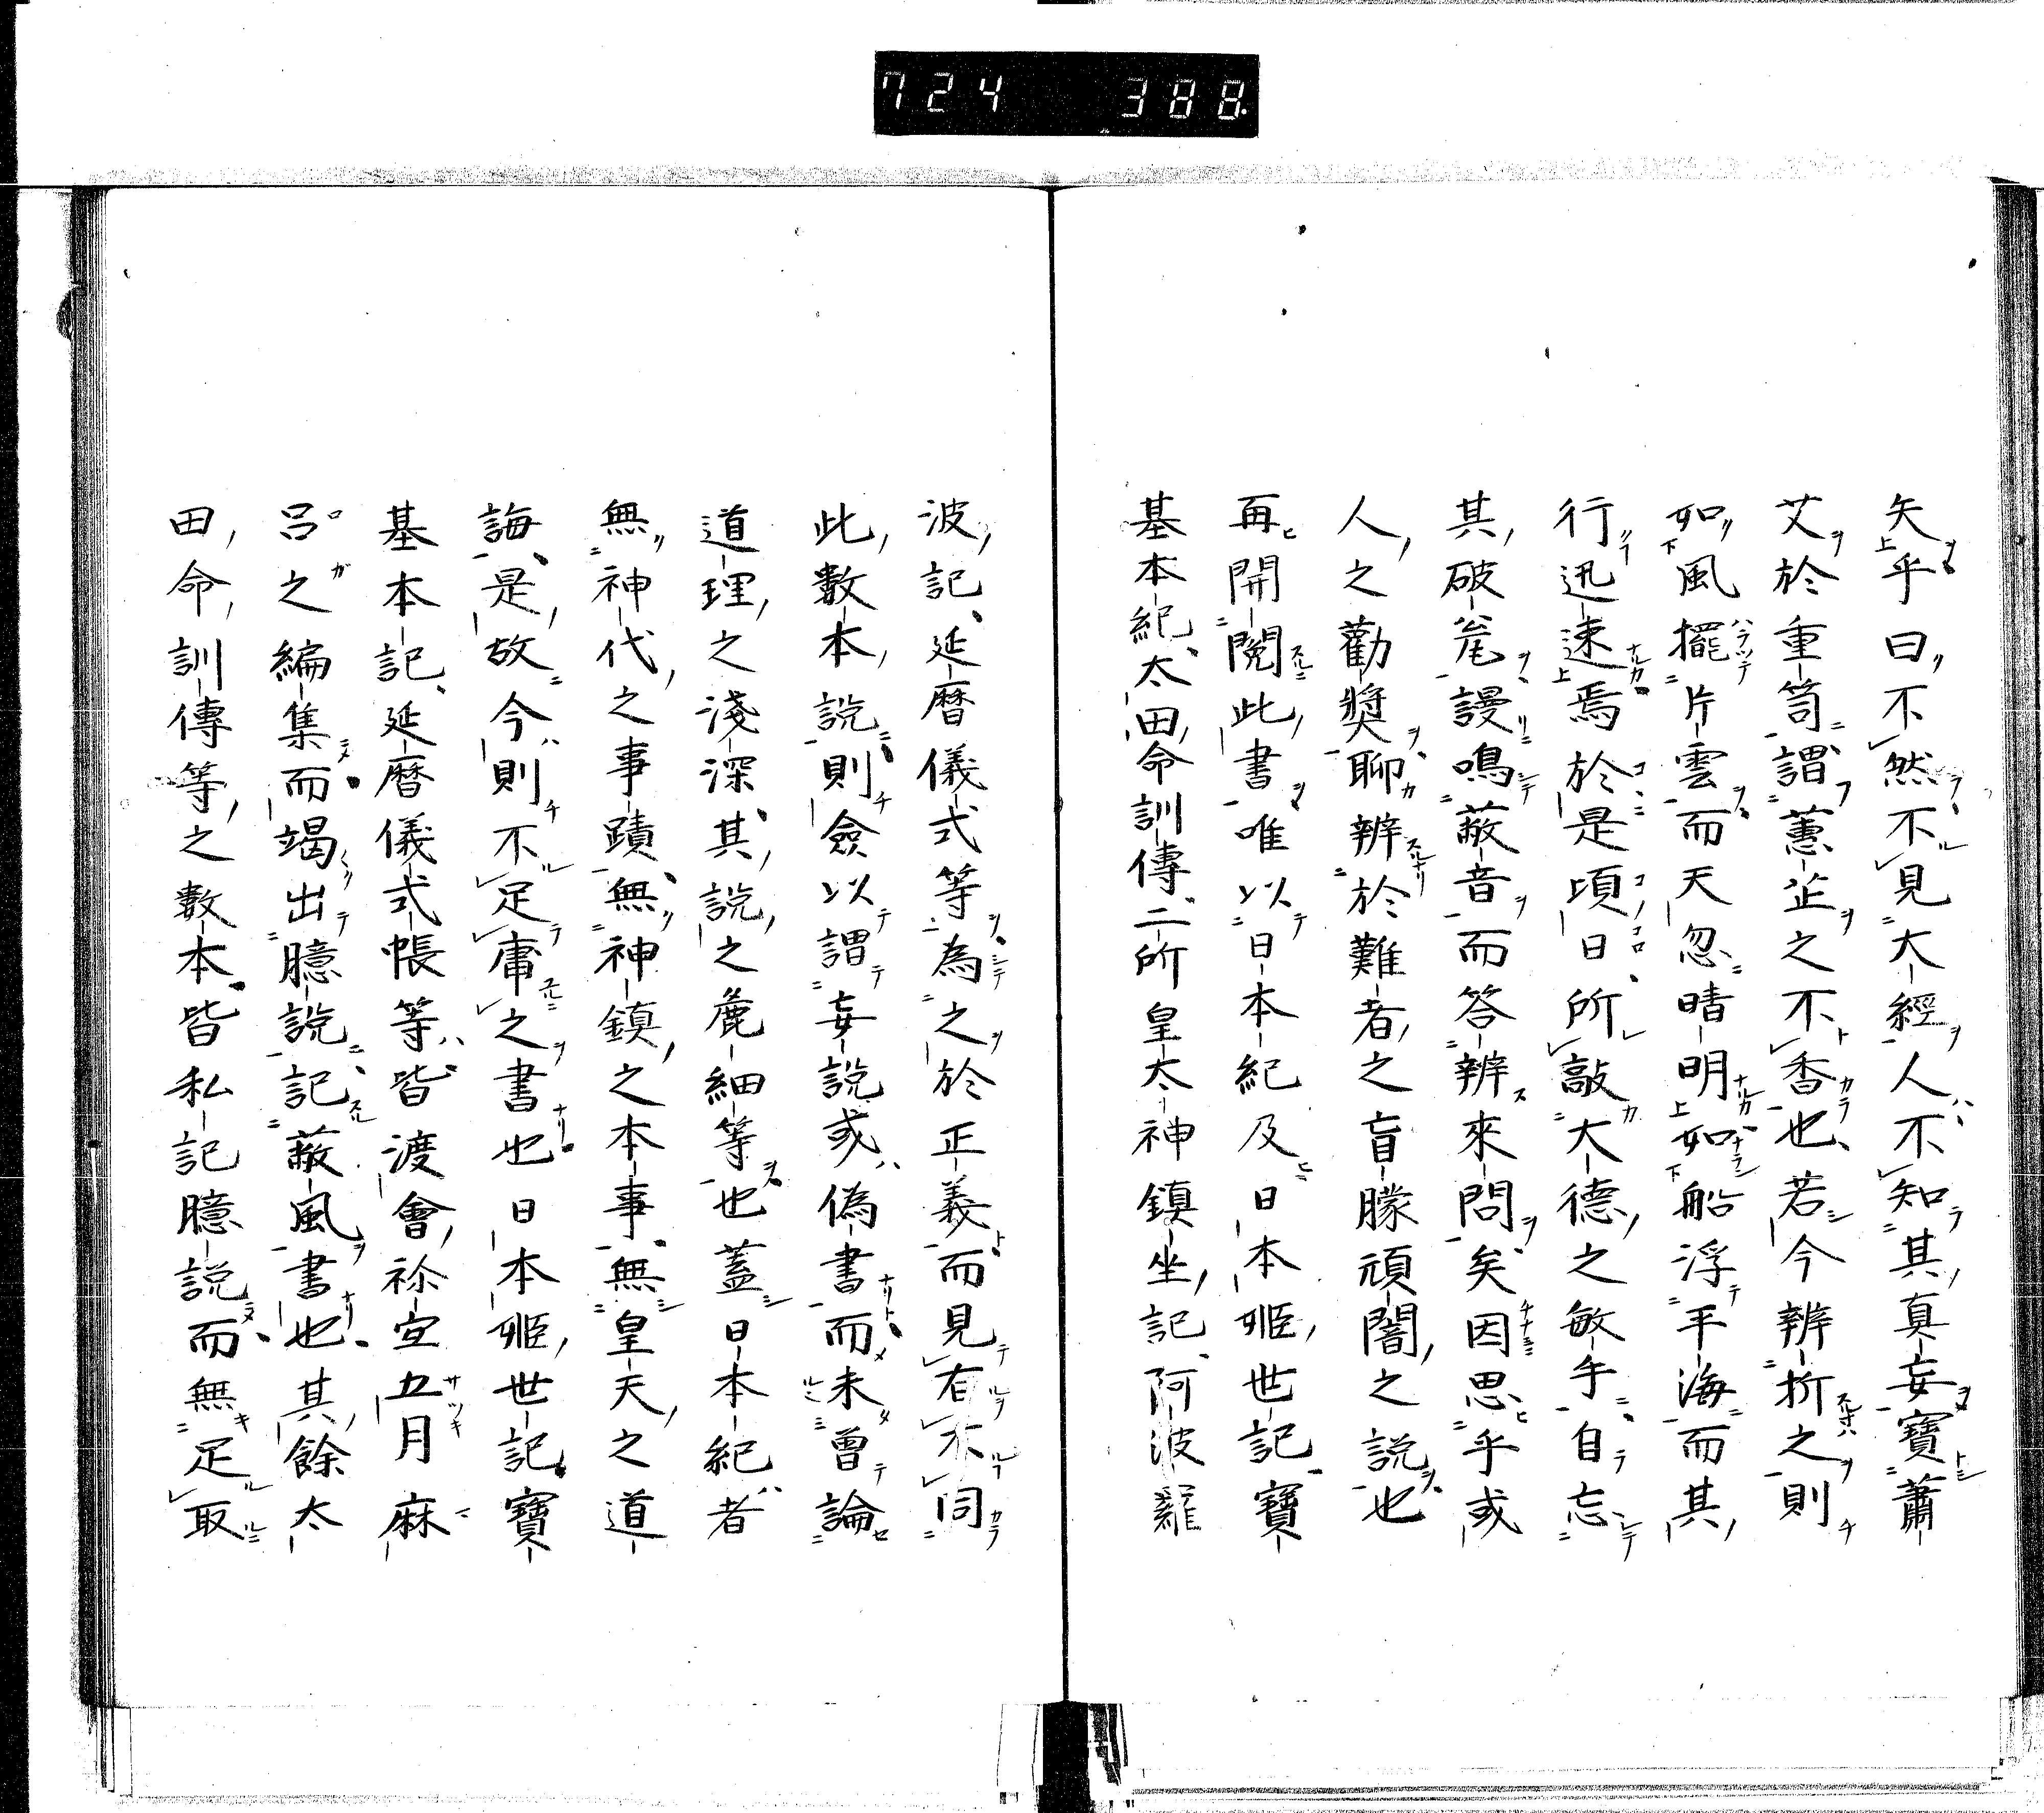 724 388
矢乎曰不然不見大經人不知其真妄寶蕭
艾於重笥謂蕙芷之不香也若今辨折之則
如風擺片雲而天忽晴明如船浮平海而其
行迅速焉於是頃日所敲大德之敏手自忘
其破瓮謾鳴蔽音而答辨來問矣因思乎或
人之勸奬聊辨於難者之盲朦頑闇之説也
再開閲此書唯以日本紀及日本姬世記寶
基本紀太田命訓傳二所皇太神鎮坐記阿波羅
波記延暦儀式等為之於正義而見有不同
此數本説則僉以謂妄說或偽書而未曾論
道理之淺深其說之麁細等也蓋日本紀者
無神代之事蹟無神鎮之本事無皇天之道
誨是故今則不足庸之書也日本姬世記寶
基本記延暦儀式帳等皆渡會祢宜五月麻
呂之編集而竭出臆説記蔽風書也其餘太
田命訓傳等之數本皆私記臆説而無足取